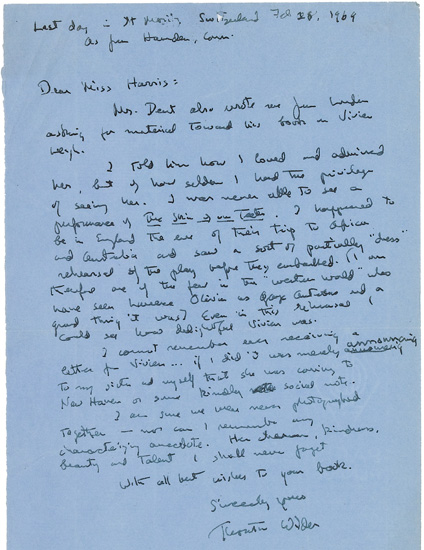 Last day in St Moritz Switzerland Feb 28, 1969
As from Hamden, Conn.
Dear Miss Harris:
Mr. Dent also wrote me from London
asking for material toward his book on Vivien
Leigh.
I told him how I loved and admired
her, but of how seldom I had the privilege
of seeing her. I was never able to see a
performance of The Skin of our Teeth. I happened to
be in England the eve of their trip to Africa
and Australia and saw a sort of partially "dress"
rehearsal of the play before they embarked. (I am
therefore one of the few in the "western world" who
have seen Laurence Olivier as George Antrobus and a
grand thing it was) Even in this rehearsal I
could see how delightful Vivien was.
I cannot remember ever receiving a
letter from Vivien... if I did it was merely announcing
to my sister and myself that she was coming to
New Haven or some kindly social note.
I am sure we were never photographed
together — nor can I remember any
characterizing anecdote. Her charm, kindness,
beauty and talent I shall never forget
With all best wishes to your book.
Sincerely yours
Thornton Wilder